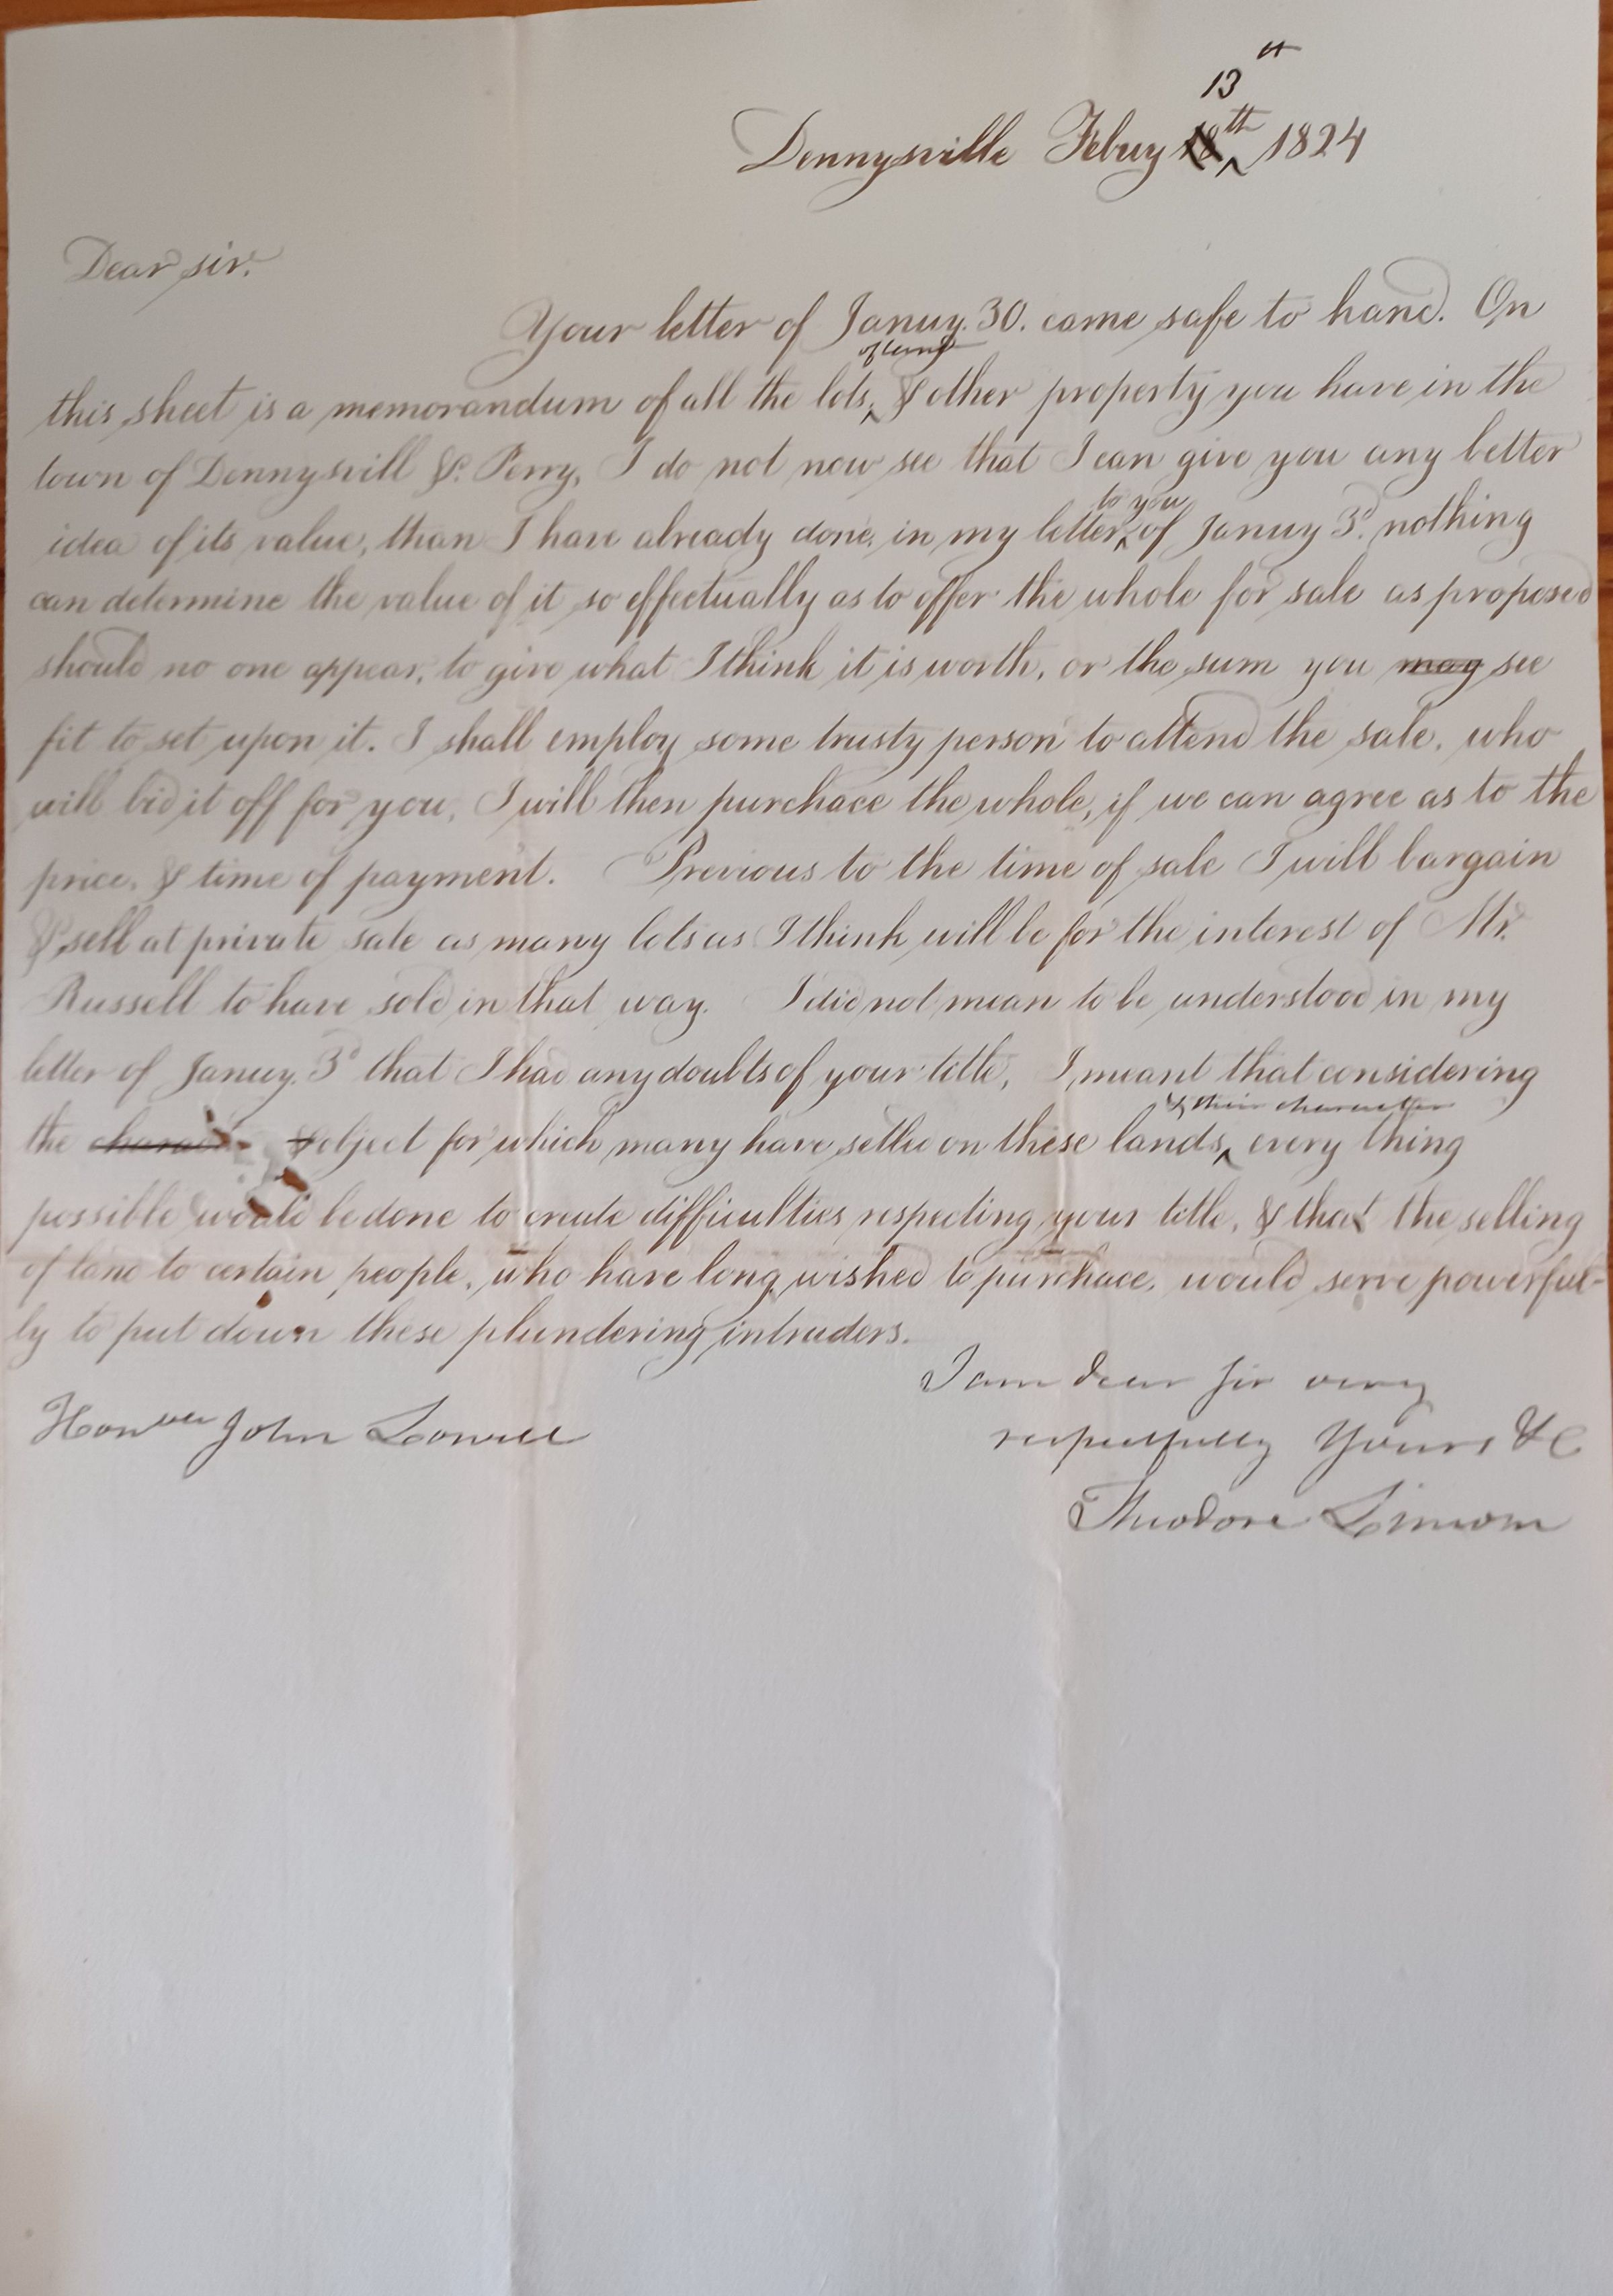 Dennysville Febuy 18th 13th 1824
Dear sir.
Your letter of Januy. 30. came safe to hand. On
this sheet is a memorandum of all the lots, of land & other property you have in the
town of Dennysvill & Perry, I do not now see that I can give you any better
idea of its value, than I have already done, in my letter, to you of Januy 3d. nothing
can determine the value of it so effectually as to offer the whole for sale as proposed
should no one appear, to give what I think it is worth, or the sum you may see
fit to set upon it. I shall employ some trusty person to attend the sale, who
will bid it off for you, I will then purchace the whole, if we can agree as to the
price, & time of payment. Previous to the time of sale I will bargain
& sell at private sale as many lots as I think will be for the interest of Mr.
Russell to have sold in that way. I did not mean to be understood in my
letter of Januy. 3d that I had any doubts of your title, I meant that considering
the & object for which many have settled on these lands, & their character every thing
possible would be done to create difficulties respecting your title, & that the selling
of land to certain people, who have long wished to purchace, would serve powerful-
ly to put down these plundering intruders.
I am dear Sir very
respectfully Yours &C
Honble John Lowell
Theodore Lincoln